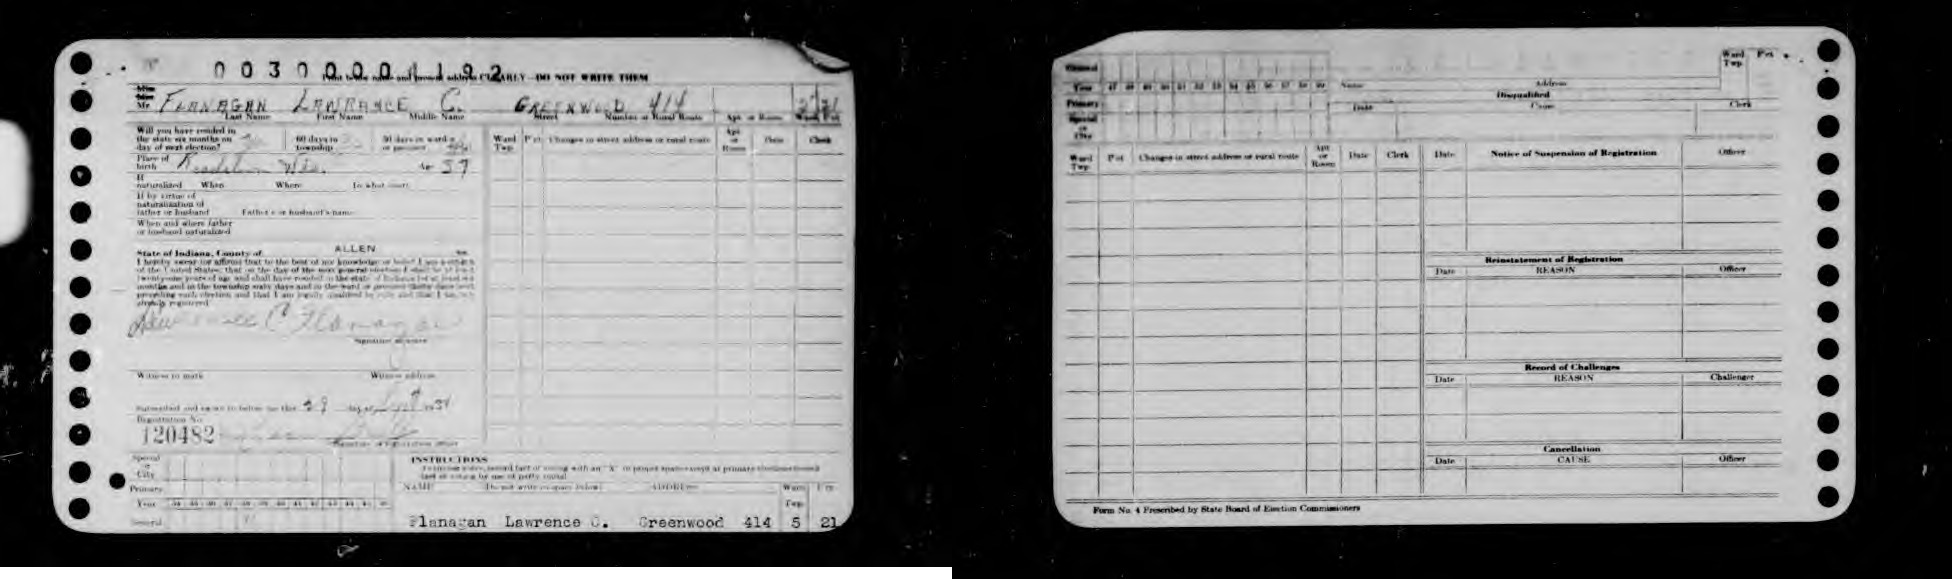 0030000192
Print below name and present address CLEARLY—DO NOT WRITE THEM
Miss
Mrs.
Mr. FLANAGAN LAWRANCE C. GREENWOOD 414 21
Last Name First Name Middle Name Street Number or Rural Route Apt. or Room Ward Pct
Will you have resided in
the state six months on 60 days in 30 days in ward
day of next election? township or precinct
Place of
birth Wis. Age 57
If
naturalized When Where In what court
If by virtue of
naturalization of
father or husband Father's or husband's name
When and where father
or husband naturalized
State of Indiana, County of ALLEN ss.
I hereby swear (or affirm) that to the best of my knowledge or belief I am a citizen
of the United States; that on the day of the next general election I shall be at least
twenty-one years of age and shall have resided in the state of Indiana for at least six
months and in the township sixty days and in the ward or precinct thirty days next
preceding such election and that I am legally qualified to vote and that I am not
already registered
Lawrence C Flanagan
Signature of voter
Witness to mark Witness address
Subscribed and sworn to before me this 29 day of Sept 1934
Registration No.
120482
Signature of registration officer
Ward Twp. Pct Changes in street address or rural route Apt or Room Date Clerk
Special
or
City
Primary
Year 34 35 36 37 38 39 40 41 42 43 44 45 46
General
INSTRUCTIONS
NAME (Do not write in space below) ADDRESS Ward Twp. Pct
Flanagan Lawrence C. Greenwood 414 5 21
General
Year 47 48 49 50 51 52 53 54 55 56 57 58 59 Name Address Ward Twp. Pct
Primary
Special
or
City
Disqualified
Date Cause Clerk
Ward Twp. Pct Changes in street address or rural route Apt or Room Date Clerk
Date Notice of Suspension of Registration Officer
Reinstatement of Registration
Date REASON Officer
Record of Challenges
Date REASON Challenger
Cancellation
Date CAUSE Officer
Form No. 4 Prescribed by State Board of Election Commissioners